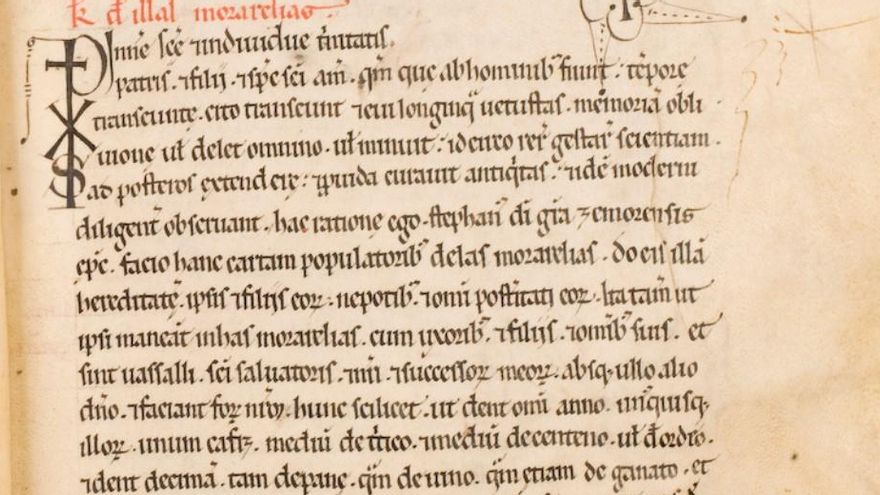 k̄ d̄ illal morarelias.
In nn̄e sc̄e ⁊ indiuidue t̄nitatis.
patris. ⁊ filij. ⁊ sp̄c sc̄i am̄. Qm̄ que ab hominib; fiunt. tēpore
transeunte. cito transeunt ⁊ eui longinq̄ uetustas. memoriā obli
uione ul̄ delet omnino. ul̄ minuit. idcirco reꝝ gestaꝝ scientiam.
ad posteros extendere. ꝓuida curauit antiq̄tas. ⁊ idē moderni
diligent̄ obseruant. hac ratione ego. stephan̄ d̄i gr̄a zemorensis
ep̄c. facio hanc cartam populatorib; de las morarelias. do eis illā
hereditatē. ipsis ⁊ filijs eoꝝ. nepotib; ⁊ omī post̄itati eoꝝ. Ita tam̄ ut
ipsi maneāt in has morarelias. cum uxorib; ⁊ filijs. ⁊ om̄ib; suis. et
sint uassalli. sc̄i saluatoris. ⁊ m̄i. ⁊ successoꝝ meoꝝ. absq; ullo alio
dn̄o. ⁊ faciant foꝝ nr̄m. hunc scilicet. ut dent omī anno. unꝰquisq;
illoꝝ. unum cafiz. mediū de t̄tico. ⁊ mediū de centeno. ul̄ d̄ ordio.
⁊ dent decimā. tam de pane. qm̄ de uino. qm̄ etiam de ganato. et